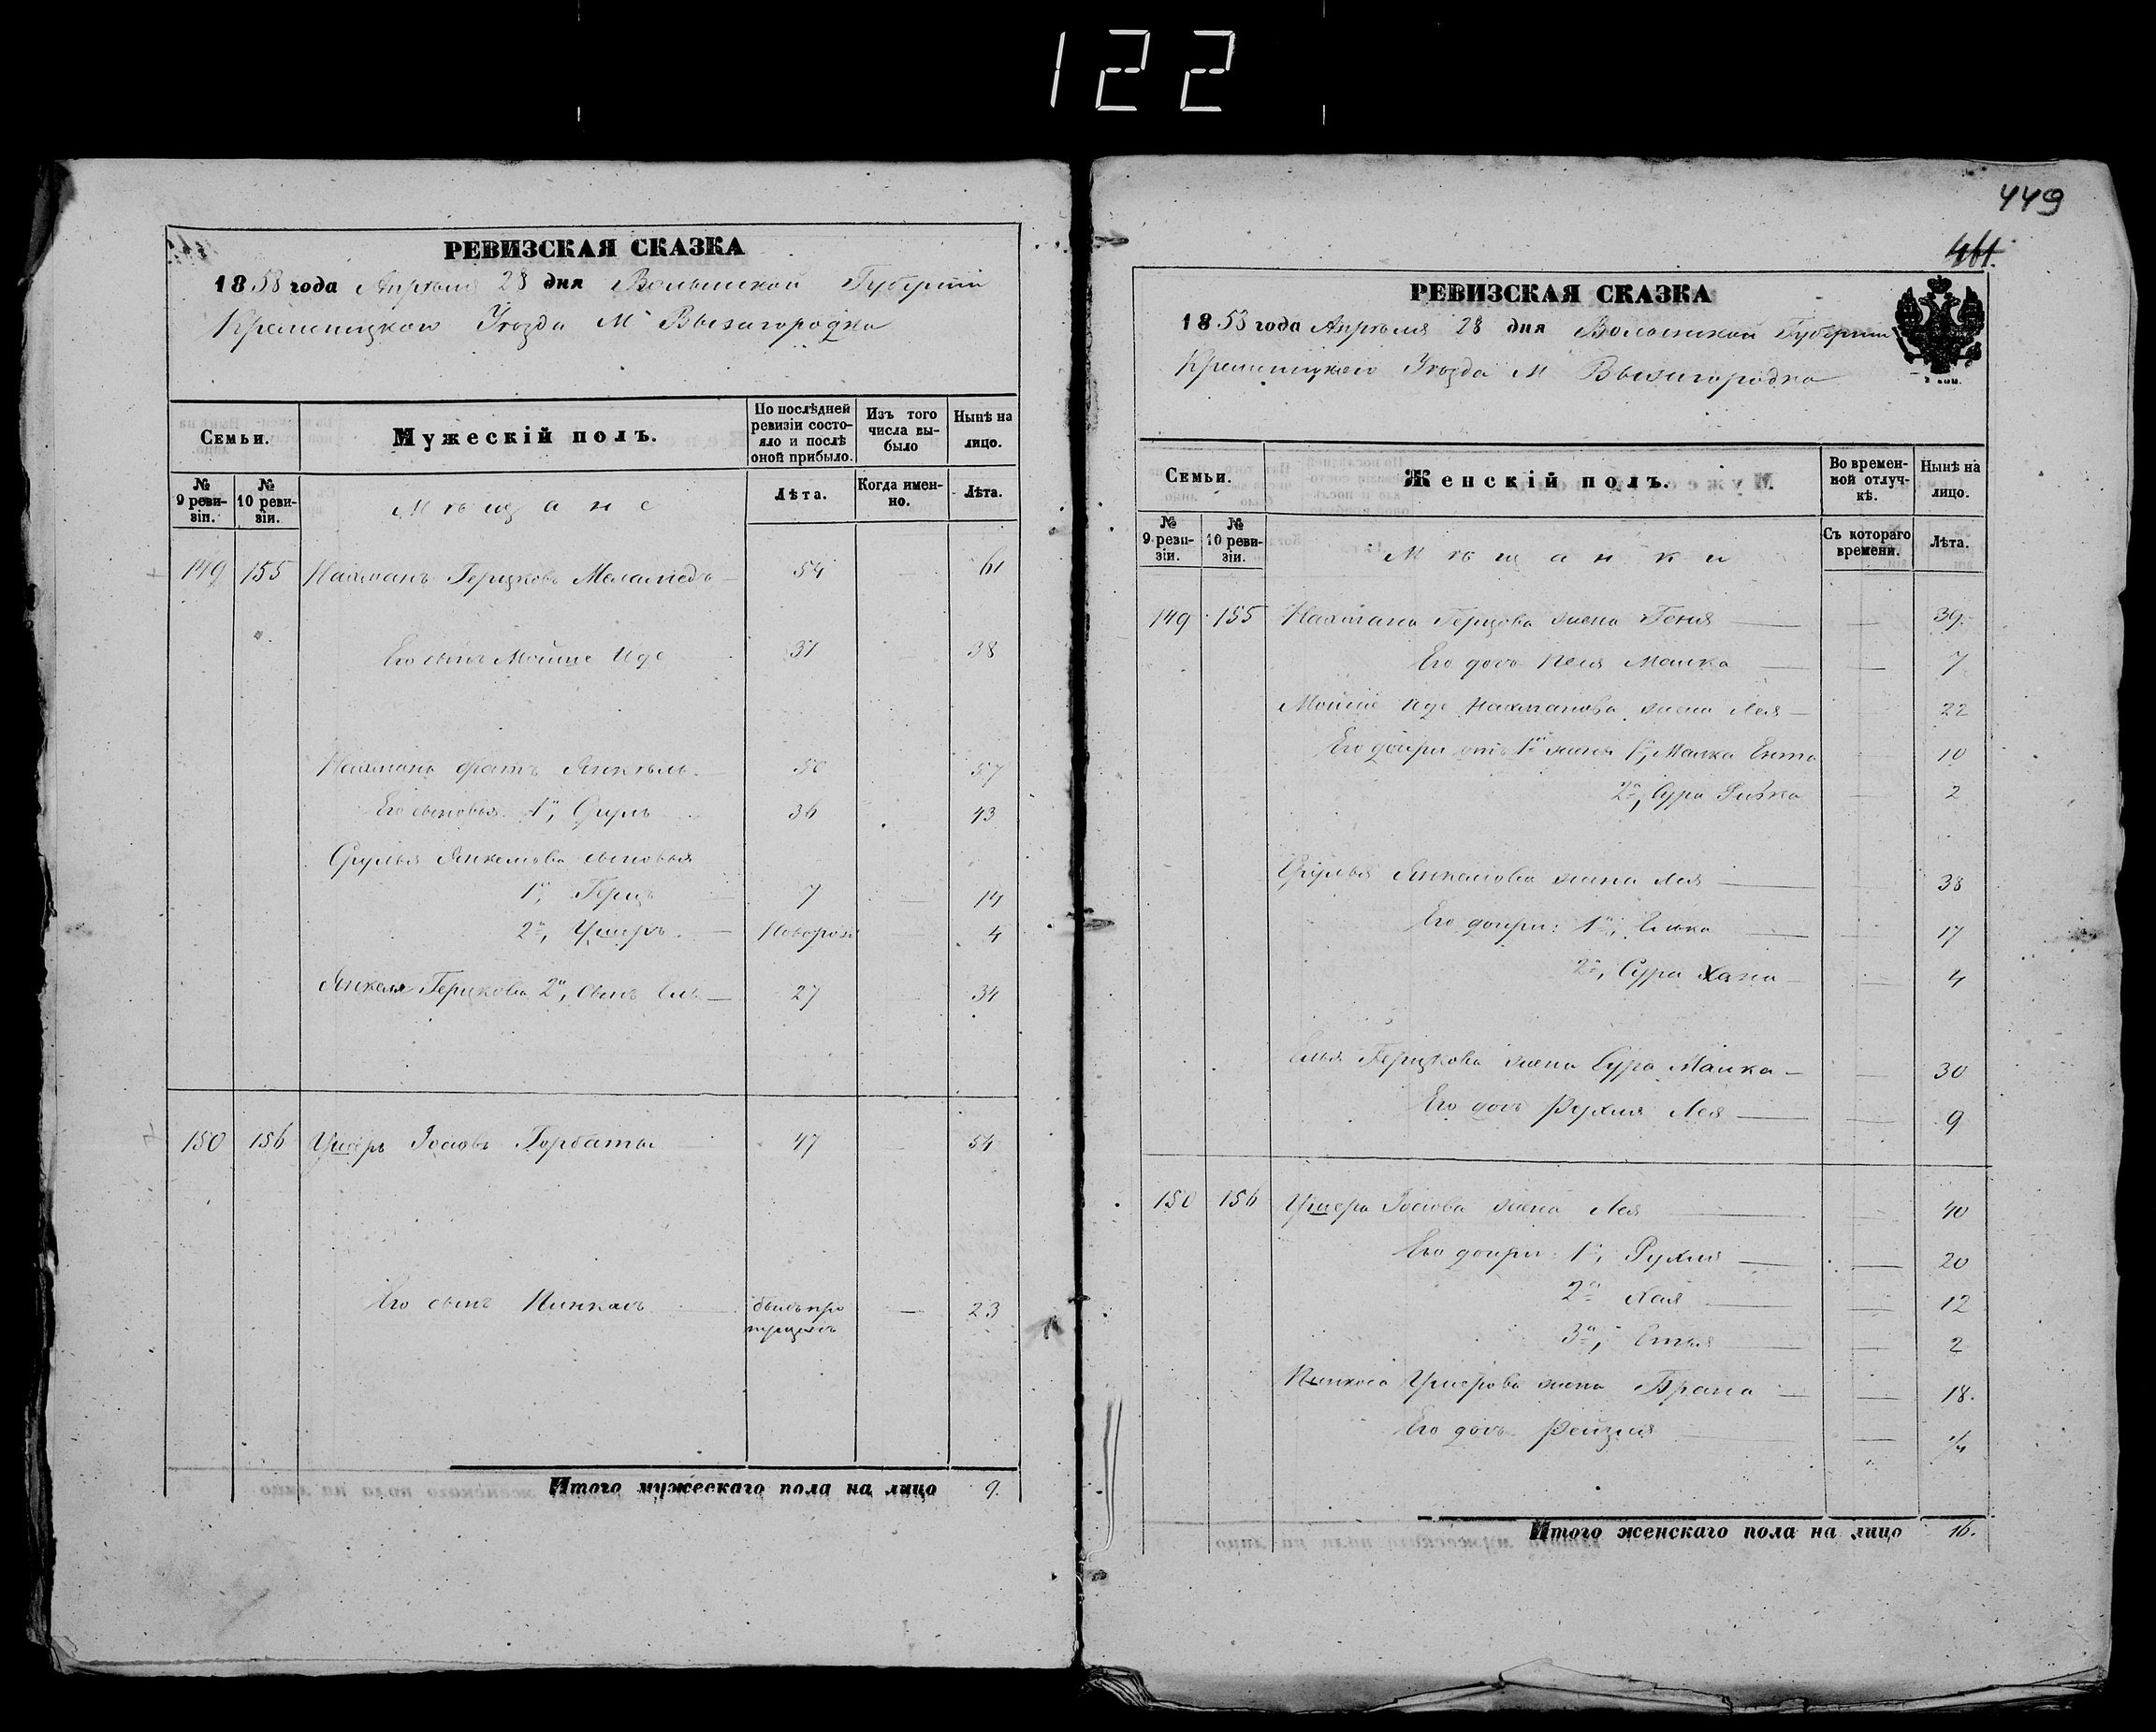 122
РЕВИЗСКАЯ СКАЗКА
1858 года Апрѣля 28 дня Волынской Губерніи
Кременецкого Уѣзда М. Вышгородка
Семьи.
Мужескій полъ.
По послѣдней ревизіи состояло и послѣ оной прибыло.
Изъ того числа выбыло
Нынѣ на лицо.
№ 9 ревизіи.
№ 10 ревизіи.
Мѣщане
Лѣта.
Когда именно.
Лѣта.
149 155 Нахманъ Герцковъ Меламедъ 54 61
Его сынъ Мойше Иде 31 38
Нахмана братъ Янкель 50 57
Его сыновья 1й, Сруль 36 43
Сруля Янкелова сыновья
1й, Герцъ 7 14
2й, Ушеръ Новорож 4
Янкеля Герцкова 2й, сынъ Ель 27 34
150 156 Ушеръ Іосіовъ Горбаты 47 54
Его сынъ Пинкасъ былъ пропущенъ — 23
Итого мужескаго пола на лицо 9.
449
461.
РЕВИЗСКАЯ СКАЗКА
1858 года Апрѣля 28 дня Волынской Губерніи
Кременецкого Уѣзда М. Вышгородка
Семьи.
Женскій полъ.
Во временной отлучкѣ.
Нынѣ на лицо.
№ 9 ревизіи.
№ 10 ревизіи.
Мѣщанки
Съ котораго времени.
Лѣта.
149 155 Нахмана Герцова жена Геня — 39.
Его дочь Песя Малка — 7
Мойше Иде Нахманова жена Лея — 22
Его дочери отъ 1й жены 1я, Малка Ента 10
2я, Сура Ривка 2
Сруля Янкелова жена Лея — 38
Его дочери: 1я, — 17
2я, Сура Хана — 4
Еля Герцкова жена Сура Малка — 30
Его дочь Рухля Лея — 9
150 156 Ушера Іосіова жена Лея — 40
Его дочери 1я, Рухля — 20
2я Хая — 12
3я, — 2
Пинкаса Ушерова жена Брана — 18.
Его дочь Рейзля — 1/4
Итого женскаго пола на лицо 16.